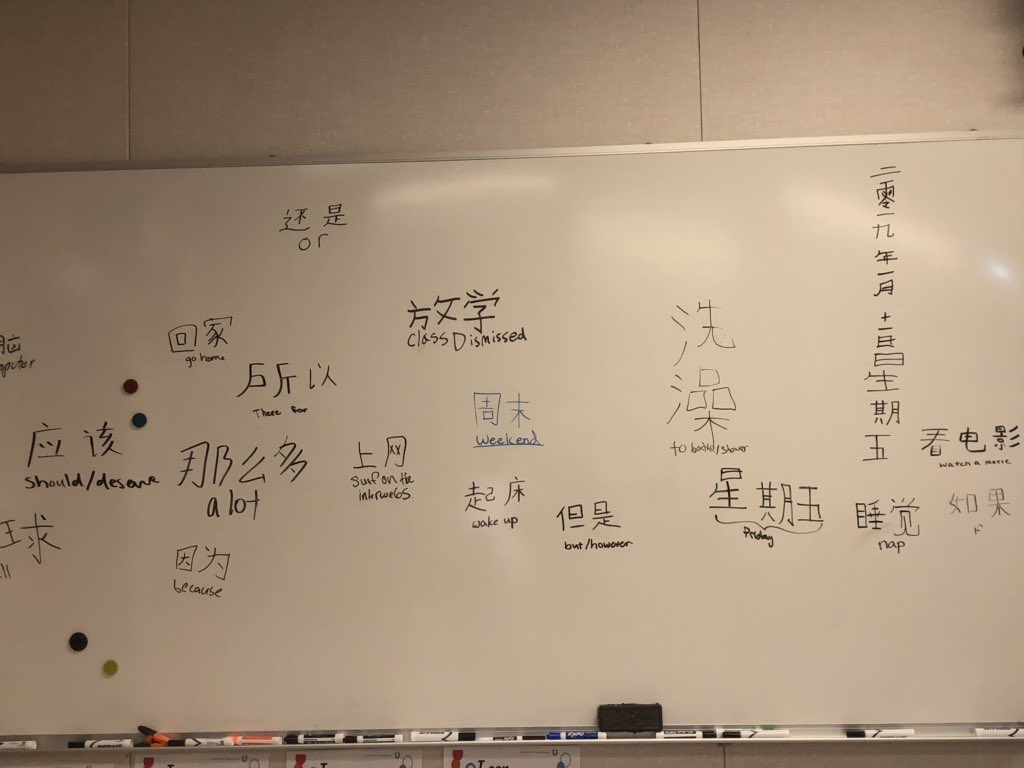 还是
or
脑
mputer
回家
go home
所以
There for
放学
Class Dismissed
洗
澡
to bathe/shower
二零一九年一月十一日星期五
应该
should/deserve
那么多
a lot
上网
Surf on the
interwebs
周末
weekend
起床
wake up
但是
but/however
星期五
Friday
看电影
watch a movie
睡觉
nap
如果
球
ll
因为
because